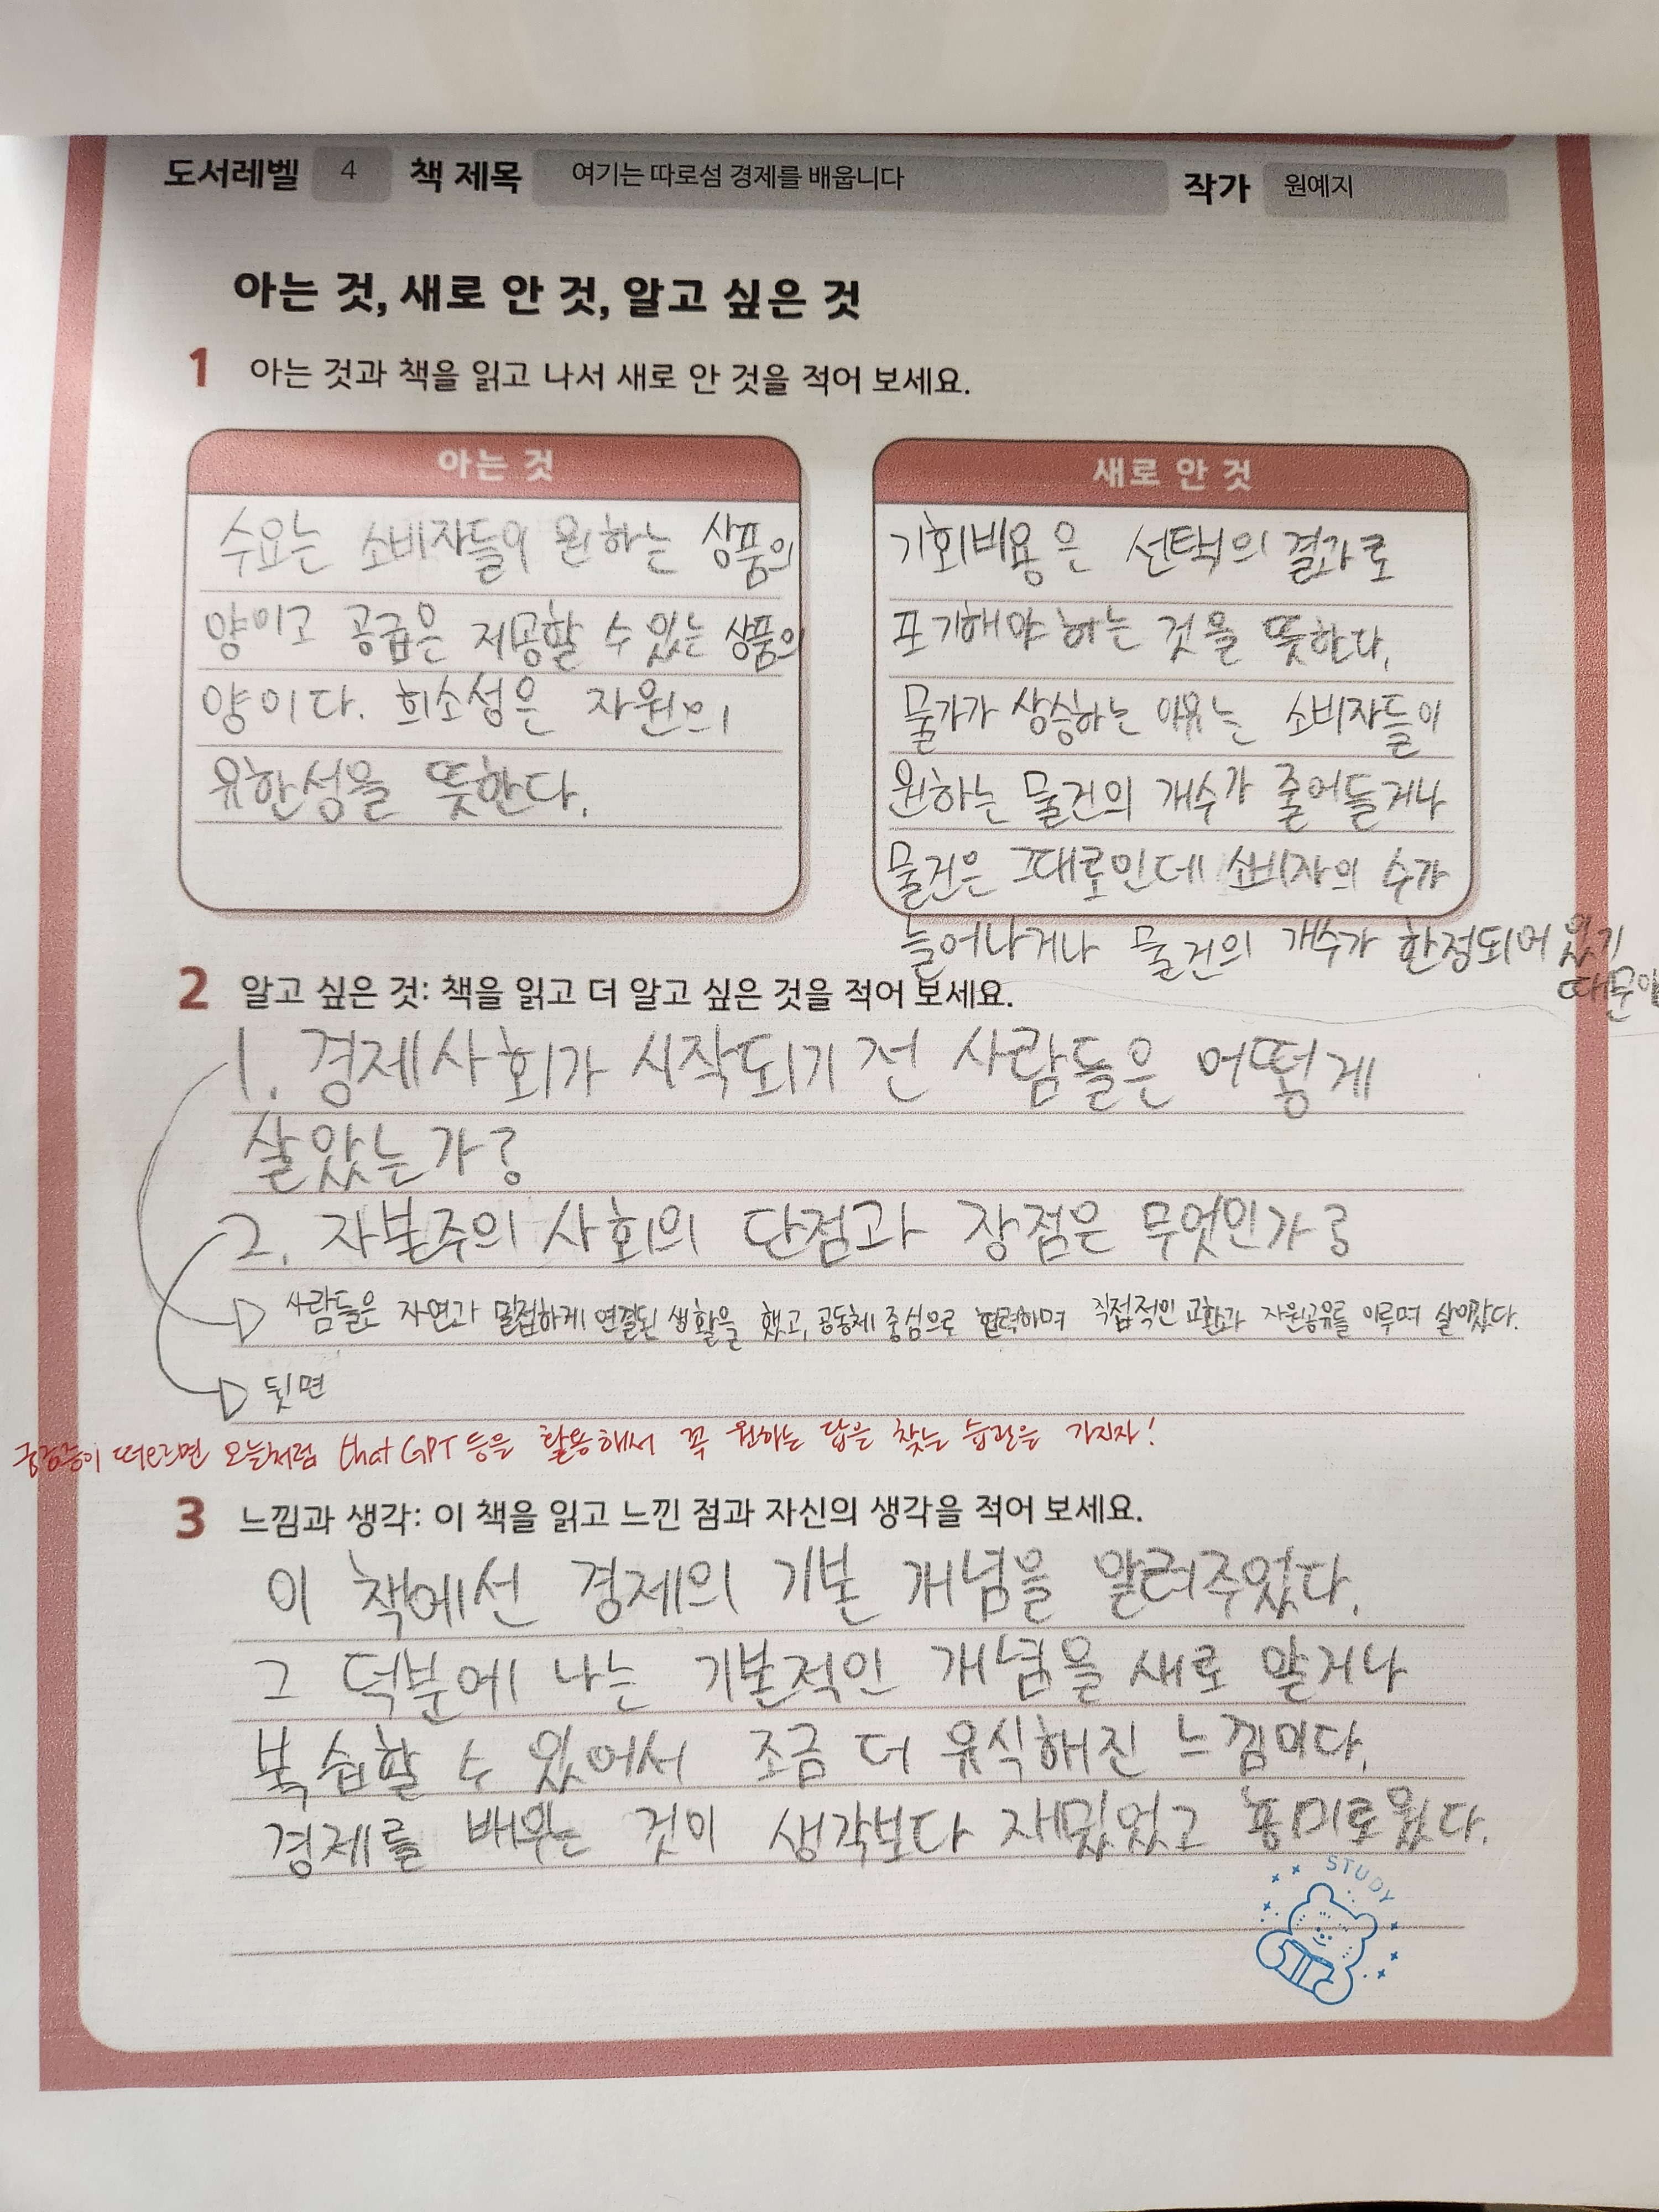 도서레벨 4 책 제목 여기는 따로섬 경제를 배웁니다 작가 원예지
아는 것, 새로 안 것, 알고 싶은 것
1 아는 것과 책을 읽고 나서 새로 안 것을 적어 보세요.
아는 것
수요는 소비자들이 원하는 상품의
양이고 공급은 제공할 수 있는 상품의
양이다. 희소성은 자원의
유한성을 뜻한다.
새로 안 것
기회비용은 선택의 결과로
포기해야 하는 것을 뜻한다.
물가가 상승하는 이유는 소비자들이
원하는 물건의 개수가 줄어들거나
물건은 그대로인데 소비자의 수가
늘어나거나 물건의 개수가 한정되어 있기
때문이
2 알고 싶은 것: 책을 읽고 더 알고 싶은 것을 적어 보세요.
1. 경제사회가 시작되기 전 사람들은 어떻게
살았는가?
2. 자본주의 사회의 단점과 장점은 무엇인가?
사람들은 자연과 밀접하게 연결된 생활을 했고, 공동체 중심으로 협력하며 직접적인 교환과 자원공유를 이루며 살아갔다.
뒷면
궁금증이 떠오르면 오늘처럼 that GPT 등을 활용해서 꼭 원하는 답을 찾는 습관을 가지자!
3 느낌과 생각: 이 책을 읽고 느낀 점과 자신의 생각을 적어 보세요.
이 책에선 경제의 기본 개념을 알려주었다.
그 덕분에 나는 기본적인 개념을 새로 알거나
복습할 수 있어서 조금 더 유식해진 느낌이다.
경제를 배우는 것이 생각보다 재밌었고 흥미로웠다.
STUDY